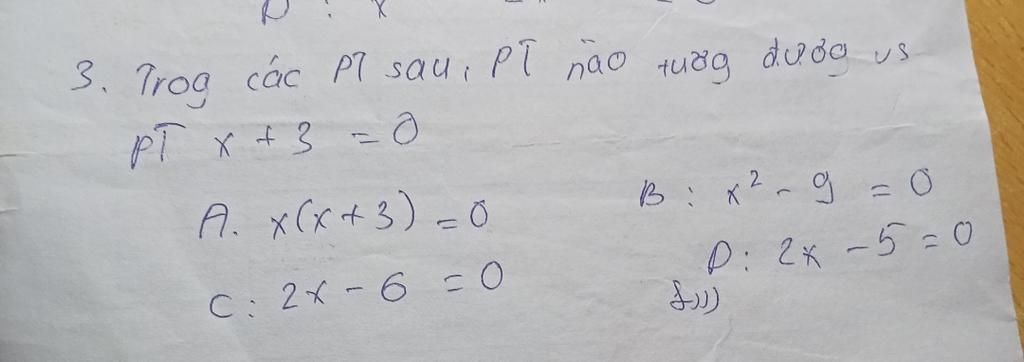 3. Trog các PT sau, PT nào tương đươg vs
PT x + 3 = 0
A. x(x+3) = 0
B : x² - 9 = 0
C : 2x - 6 = 0
D : 2x - 5 = 0